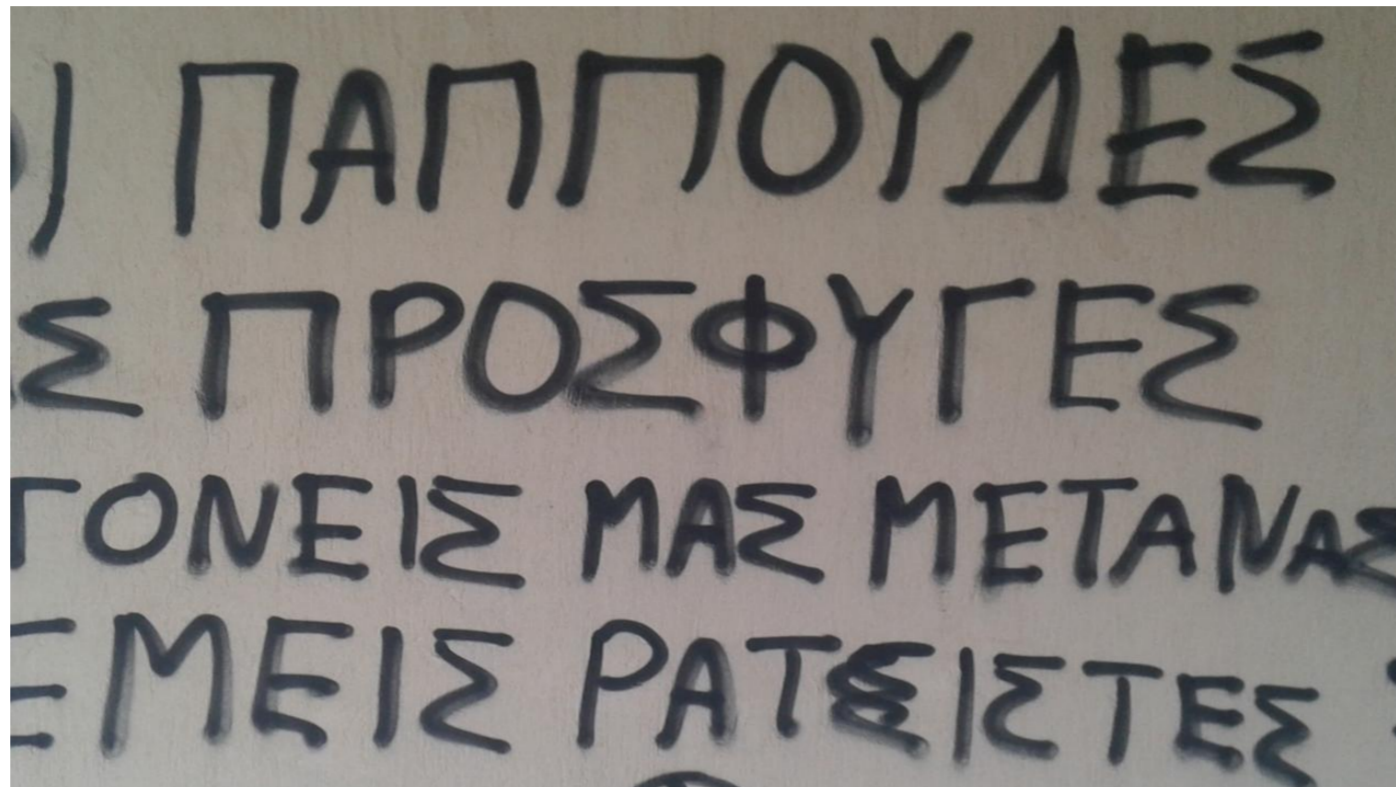 ΟΙ ΠΑΠΠΟΥΔΕΣ
ΠΡΟΣΦΥΓΕΣ
ΓΟΝΕΙΣ ΜΑΣ ΜΕΤΑΝΑΣ
ΕΜΕΙΣ ΡΑΤΣΙΣΤΕΣ